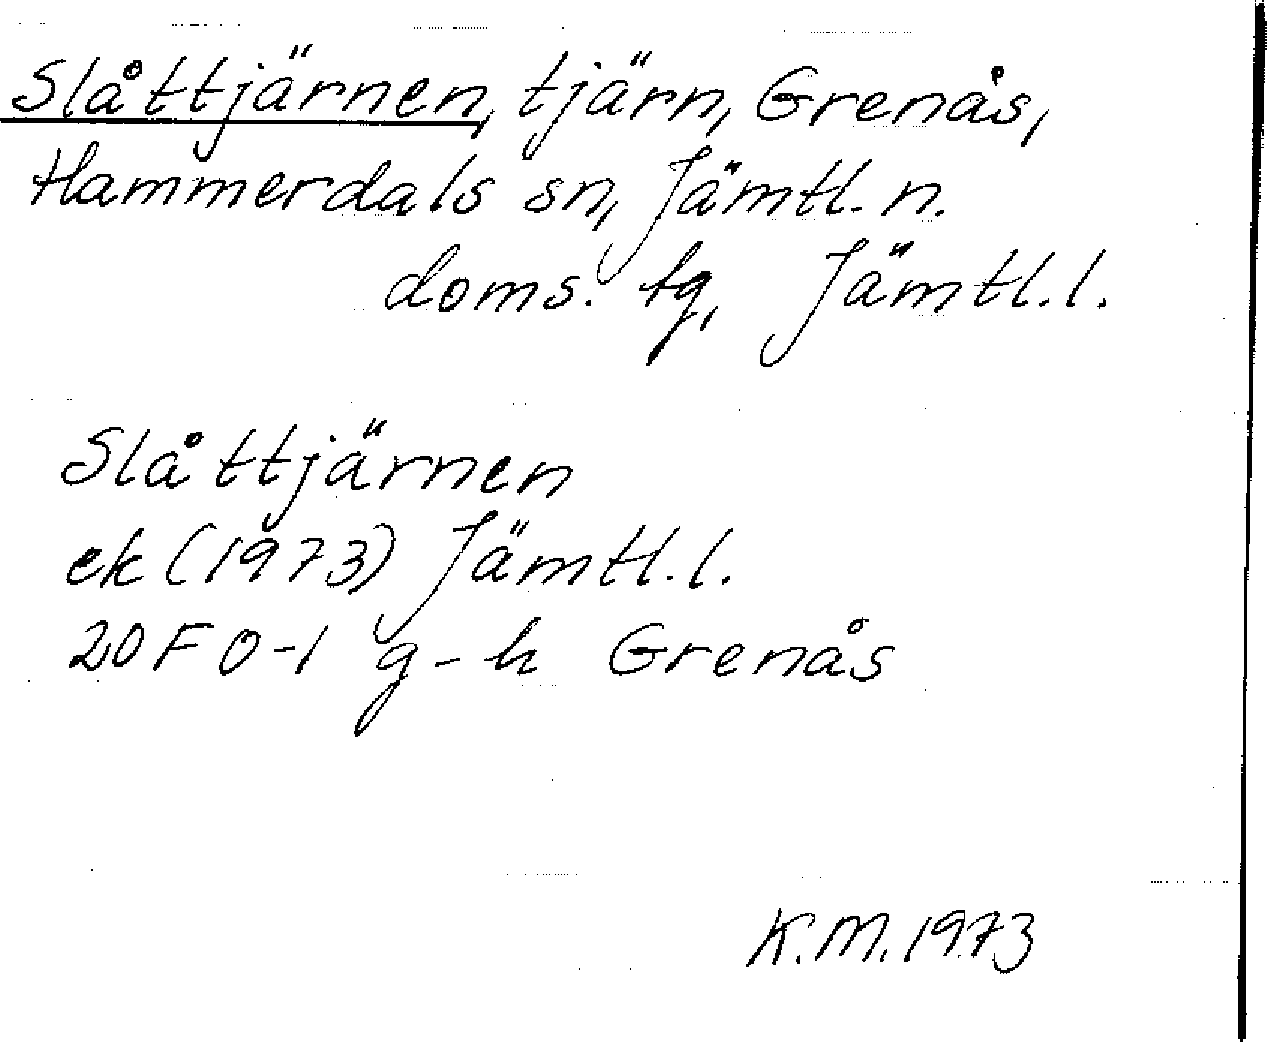 Slåttjärnen, tjärn, Grenås,
Hammerdals sn, Jämtl. n.
doms. tg, Jämtl. l.
Slåttjärnen
ek (1973) Jämtl. l.
20F 0-1 g-h Grenås
K.M. 1973